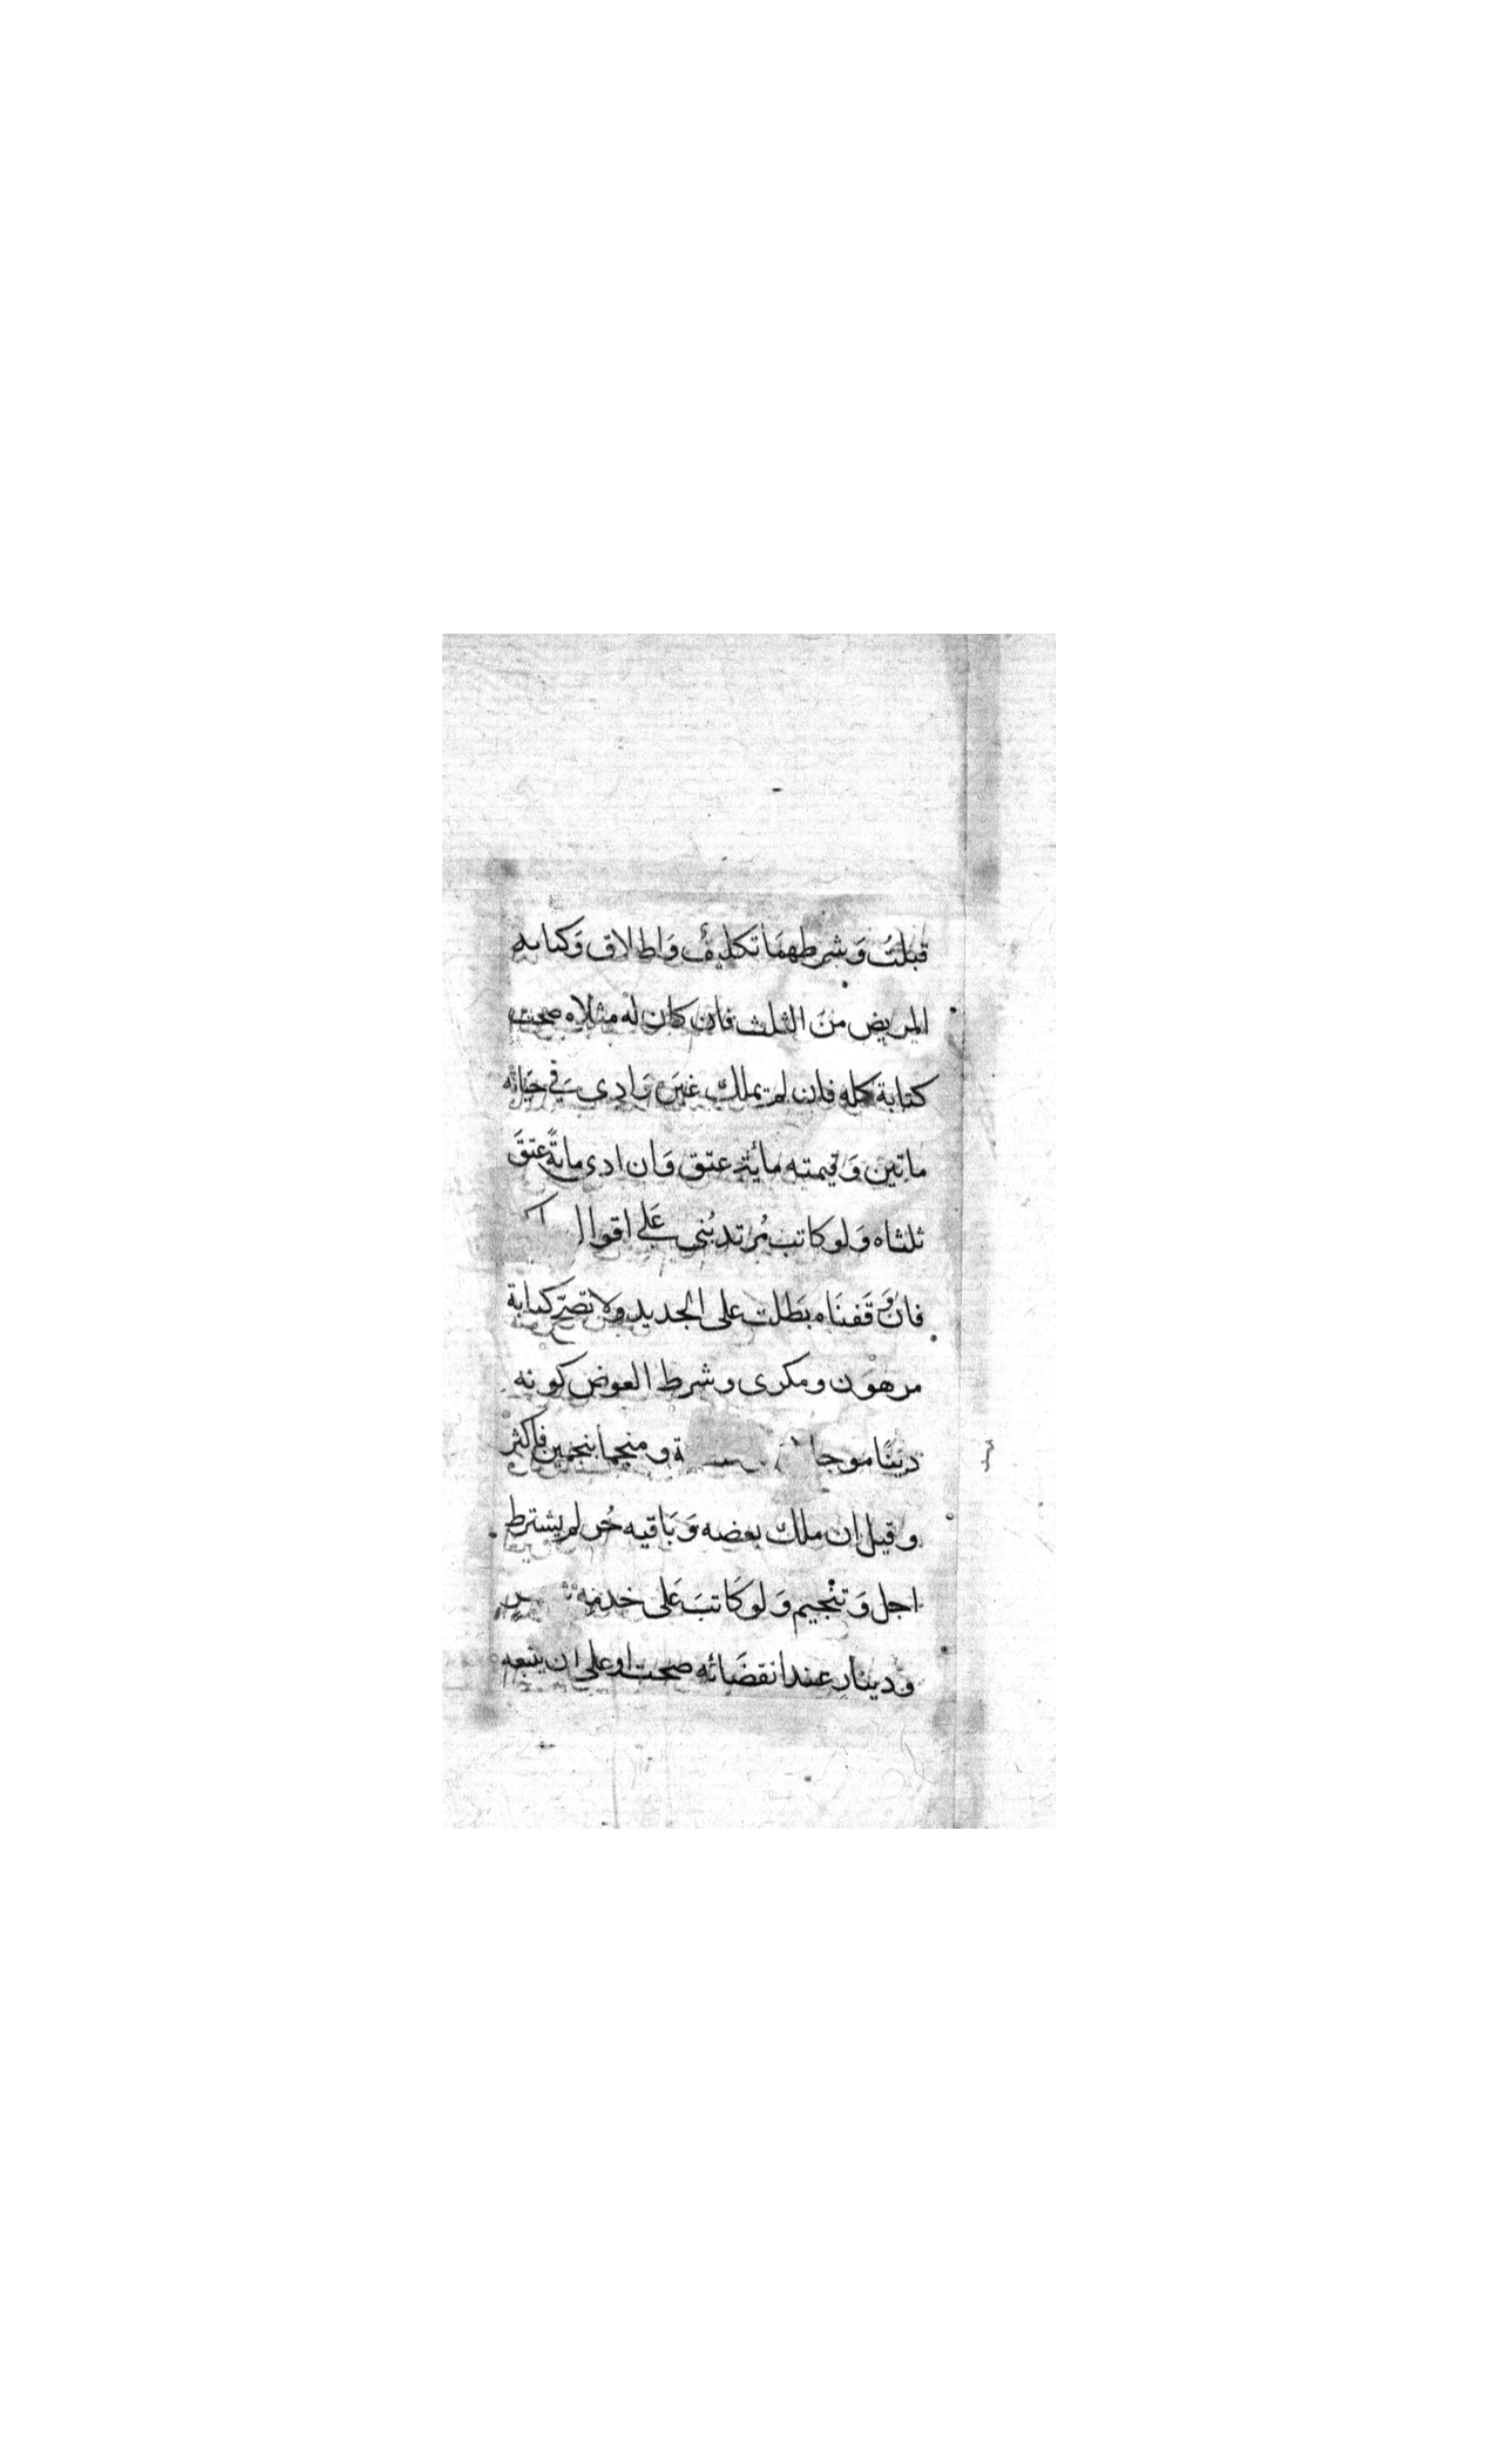 قبلتُ وَشرطهمَا تكليفٌ وَاطلاق وَكتابه
المريض منَ الثلث فان كان له مثلاه صحت
كتابة كله فان لم يملك غيرَه وَادى في حيَاته
ماتين وَقيمته مائة عتق وَان ادى مايةً عتقَ
ثلثاه وَلو كاتب مُرتد بُنى عَلى اقوال
فان وَقَفنَاه بَطلت على الجديد ولا تصحّ كتابة
مرهوَن ومكرى وشرط العوض كونه
دينًا موجلا ة ومنجما بنجمين فاكثر
وقيل ان ملك بعضه وَبَاقيه حُر لم يشترط
اجل وَتنْجيم وَلو كَاتبَ عَلى خدمة
ودينار عند انقضَائه صحت او على ان يبيعه